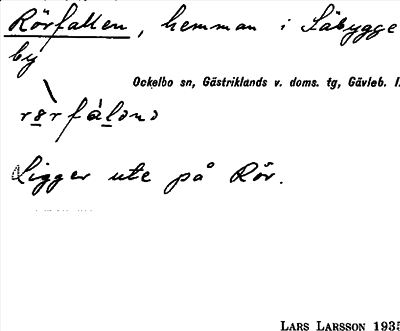 Rörfallen, hemman i Säbygge
by
Ockelbo sn, Gästriklands v. doms. tg, Gävleb. l.
Ligger ute på Rör.
LARS LARSSON 1935